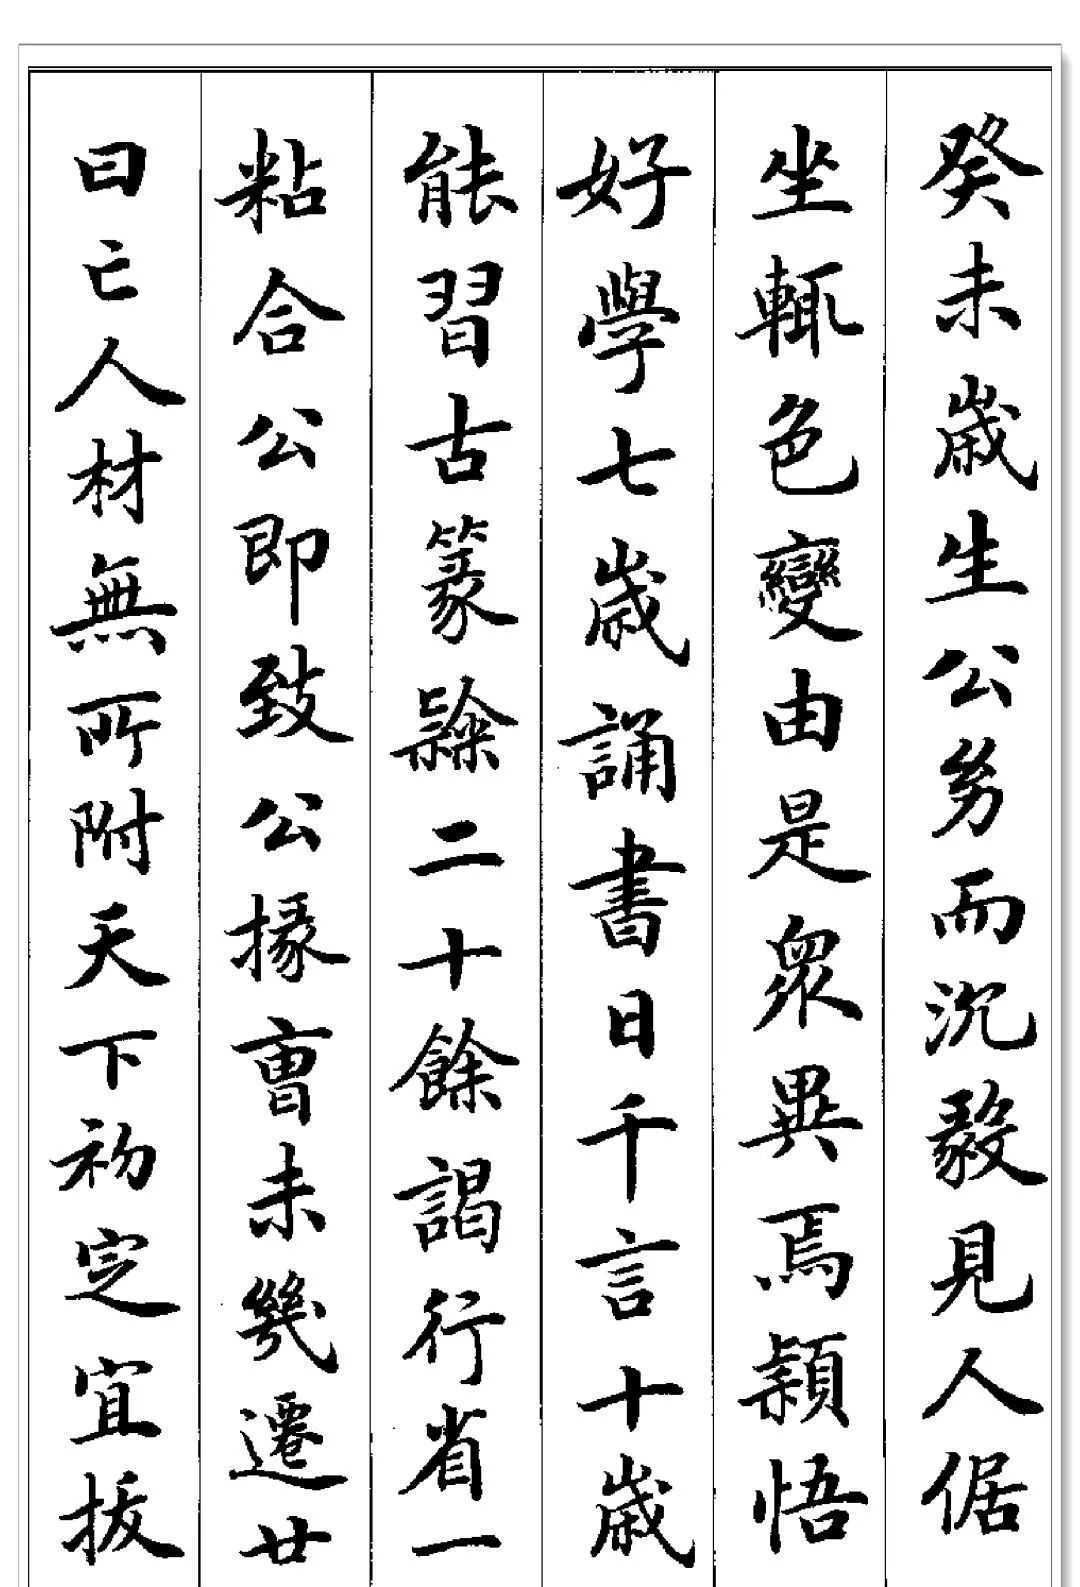 癸未歳生公㓜而沉毅見人倨
坐輒色變由是衆異焉穎悟
好學七歳誦書日千言十歳
能習古篆隸二十餘謁行省一
粘合公即致公掾曺未幾遷廿
曰亡人材無所附天下初定宜拔